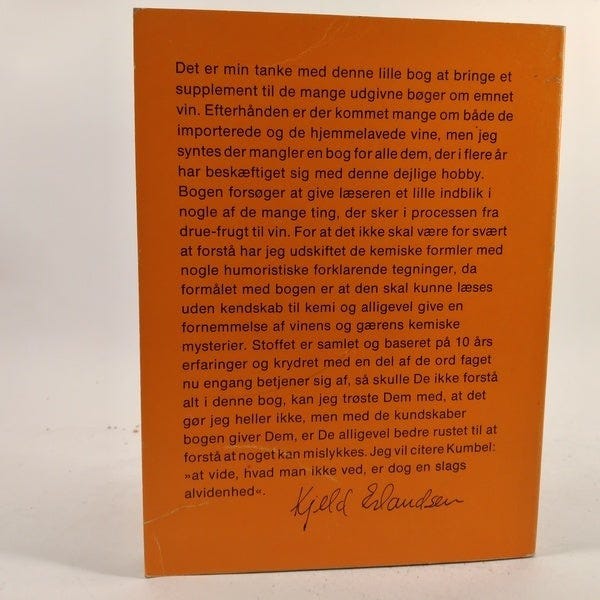 Det er min tanke med denne lille bog at bringe et
supplement til de mange udgivne bøger om emnet
vin. Efterhånden er der kommet mange om både de
importerede og de hjemmelavede vine, men jeg
syntes der mangler en bog for alle dem, der i flere år
har beskæftiget sig med denne dejlige hobby.
Bogen forsøger at give læseren et lille indblik i
nogle af de mange ting, der sker i processen fra
drue-frugt til vin. For at det ikke skal være for svært
at forstå har jeg udskiftet de kemiske formler med
nogle humoristiske forklarende tegninger, da
formålet med bogen er at den skal kunne læses
uden kendskab til kemi og alligevel give en
fornemmelse af vinens og gærens kemiske
mysterier. Stoffet er samlet og baseret på 10 års
erfaringer og krydret med en del af de ord faget
nu engang betjener sig af, så skulle De ikke forstå
alt i denne bog, kan jeg trøste Dem med, at det
gør jeg heller ikke, men med de kundskaber
bogen giver Dem, er De alligevel bedre rustet til at
forstå at noget kan mislykkes. Jeg vil citere Kumbel:
»at vide, hvad man ikke ved, er dog en slags
alvidenhed«.
Kjeld Erlandsen